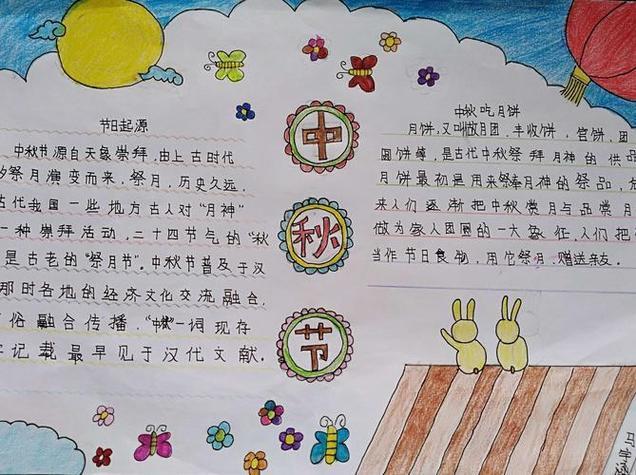 节日起源
中秋节源自天象崇拜,由上古时代
夕祭月演变而来.祭月,历史久远,
古代我国一些地方古人对“月神”
一种崇拜活动,二十四节气的“秋
是古老的“祭月节”.中秋节普及于汉
那时各地的经济文化交流融合,
俗融合传播.“中秋”一词现存
记载最早见于汉代文献.
中
秋
节
中秋吃月饼
月饼,又叫做月团、丰收饼、宫饼、团
圆饼等,是古代中秋祭拜月神的供品
月饼最初是用来祭奉月神的祭品,
来人们逐渐把中秋赏月与品赏月
做为家人团圆的一大象征,人们把
当作节日食物,用它祭月、赠送亲友.